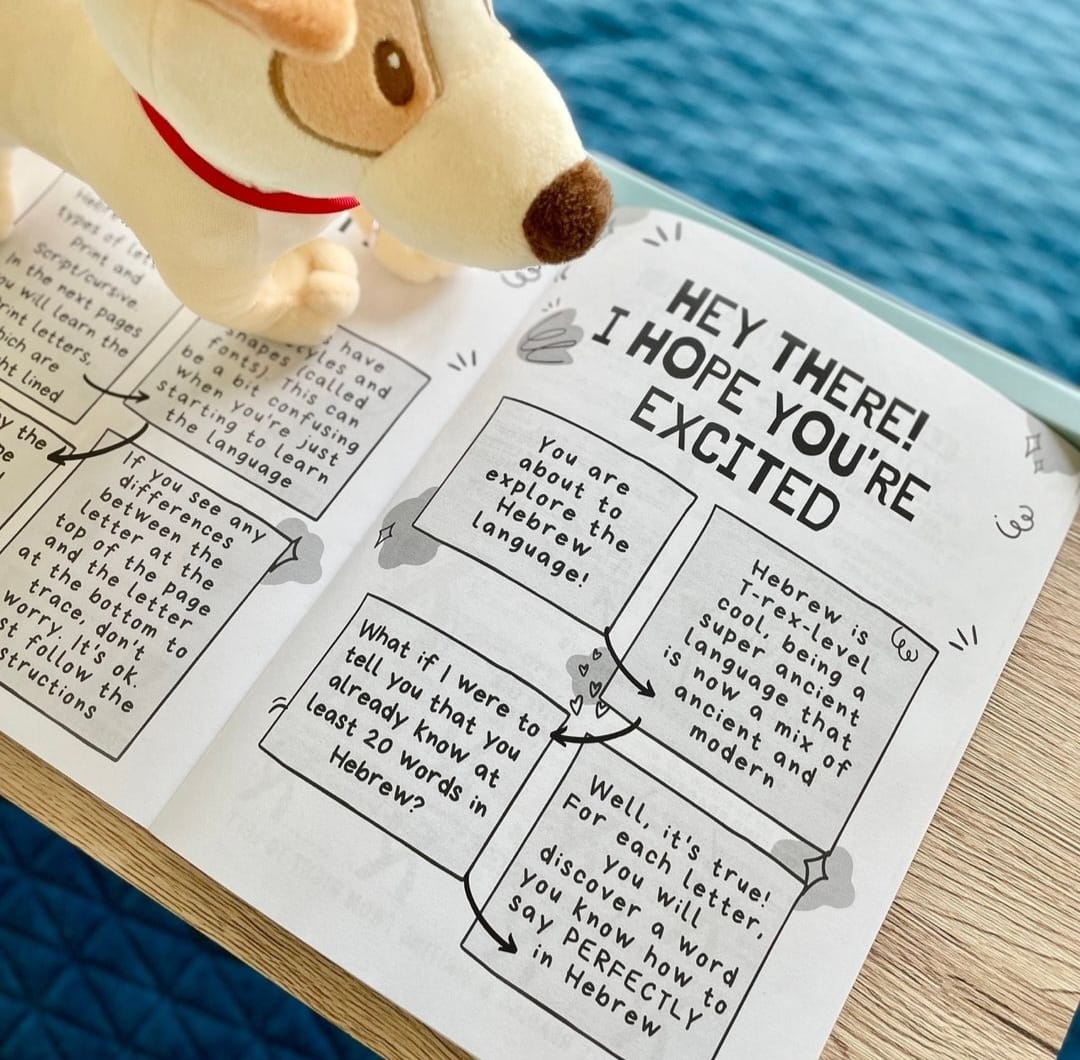 types of
print and
script/cursive.
In the next pages
you will learn the
print letters,
which are
lined
have
and
shapes (called
fonts) This can
be a bit confusing
when you're just
starting to learn
the language
by the
If you see any
differences
between the
letter at the
top of the page
and the letter
at the bottom to
trace, don't
worry. It's ok.
follow the
HEY THERE!
I HOPE YOU'RE
EXCITED
You are
about to
explore the
Hebrew
language!
Hebrew is
T-rex-level
cool, being a
super ancient
language that
is now a mix of
ancient and
modern
What if I were to
tell you that you
already know at
least 20 words in
Hebrew?
Well, it's true!
For each letter,
you will
discover a word
you know how to
say PERFECTLY
in Hebrew